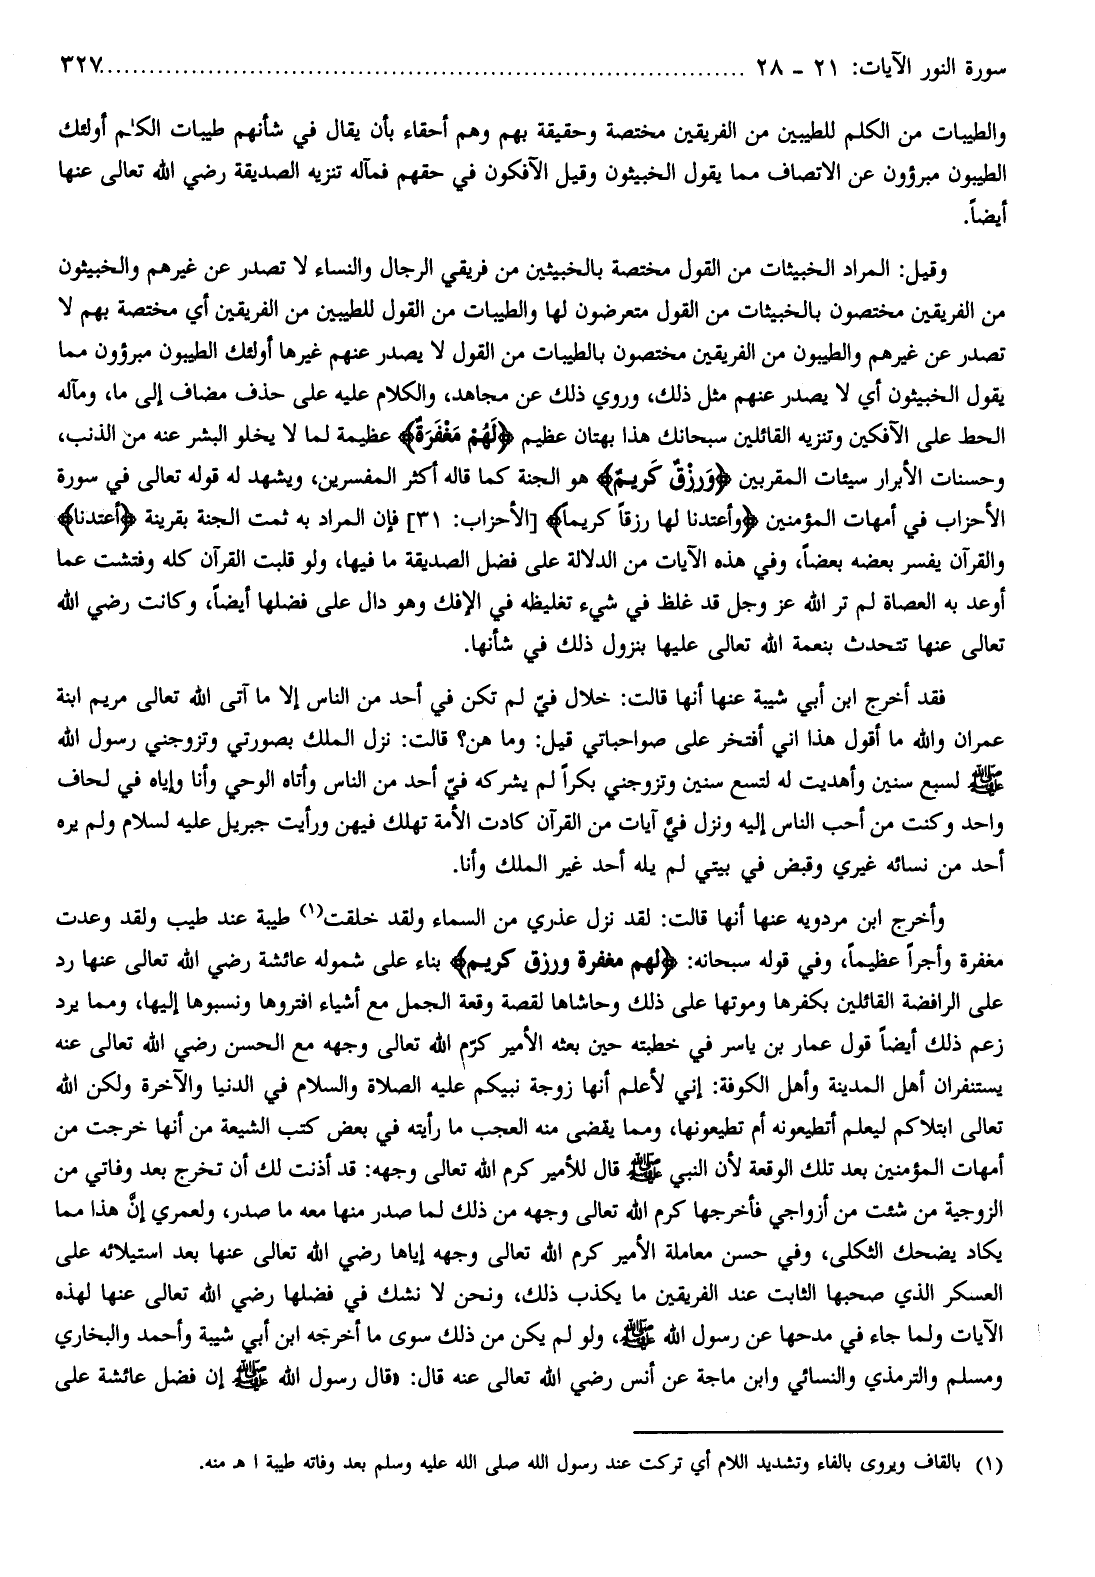 سورة النور الآيات: ٢١ - ٢٨ ........................................................................ ٣٢٧
والطيبات من الكلم للطيبين من الفريقين مختصة وحقيقة بهم وهم أحقاء بأن يقال في شأنهم طيبات الكلم أولئك
الطيبون مبرؤون عن الاتصاف مما يقول الخبيثون وقيل الآفكون في حقهم فمآله تنزيه الصديقة رضي الله تعالى عنها
أيضاً.
وقيل: المراد الخبيثات من القول مختصة بالخبيثين من فريقي الرجال والنساء لا تصدر عن غيرهم والخبيثون
من الفريقين مختصون بالخبيثات من القول متعرضون لها والطيبات من القول للطيبين من الفريقين أي مختصة بهم لا
تصدر عن غيرهم والطيبون من الفريقين مختصون بالطيبات من القول لا يصدر عنهم غيرها أولئك الطيبون مبرؤون مما
يقول الخبيثون أي لا يصدر عنهم مثل ذلك، وروي ذلك عن مجاهد، والكلام عليه على حذف مضاف إلى ما، ومآله
الحط على الآفكين وتنزيه القائلين سبحانك هذا بهتان عظيم ﴿لَهُمْ مَغْفَرَةٌ﴾ عظيمة لما لا يخلو البشر عنه من الذنب،
وحسنات الأبرار سيئات المقربين ﴿وَرِزْقٌ كَرِيمٌ﴾ هو الجنة كما قاله أكثر المفسرين، ويشهد له قوله تعالى في سورة
الأحزاب في أمهات المؤمنين ﴿وأعتدنا لها رزقاً كريماً﴾ [الأحزاب: ٣١] فإن المراد به ثمت الجنة بقرينة ﴿أعتدنا﴾
والقرآن يفسر بعضه بعضاً، وفي هذه الآيات من الدلالة على فضل الصديقة ما فيها، ولو قلبت القرآن كله وفتشت عما
أوعد به العصاة لم تر الله عز وجل قد غلظ في شيء تغليظه في الإفك وهو دال على فضلها أيضاً، وكانت رضي الله
تعالى عنها تتحدث بنعمة الله تعالى عليها بنزول ذلك في شأنها.
فقد أخرج ابن أبي شيبة عنها أنها قالت: خلال فيّ لم تكن في أحد من الناس إلا ما آتى الله تعالى مريم ابنة
عمران والله ما أقول هذا اني أفتخر على صواحباتي قيل: وما هن؟ قالت: نزل الملك بصورتي وتزوجني رسول الله
ﷺ لسبع سنين وأهديت له لتسع سنين وتزوجني بكراً لم يشركه فيّ أحد من الناس وأتاه الوحي وأنا وإياه في لحاف
واحد وكنت من أحب الناس إليه ونزل فيَّ آيات من القرآن كادت الأمة تهلك فيهن ورأيت جبريل عليه لسلام ولم يره
أحد من نسائه غيري وقبض في بيتي لم يله أحد غير الملك وأنا.
وأخرج ابن مردويه عنها أنها قالت: لقد نزل عذري من السماء ولقد خلقت(١) طيبة عند طيب ولقد وعدت
مغفرة وأجراً عظيماً، وفي قوله سبحانه: ﴿لهم مغفرة ورزق كريم﴾ بناء على شموله عائشة رضي الله تعالى عنها رد
على الرافضة القائلين بكفرها وموتها على ذلك وحاشاها لقصة وقعة الجمل مع أشياء افتروها ونسبوها إليها، ومما يرد
زعم ذلك أيضاً قول عمار بن ياسر في خطبته حين بعثه الأمير كرّم الله تعالى وجهه مع الحسن رضي الله تعالى عنه
يستنفران أهل المدينة وأهل الكوفة: إني لأعلم أنها زوجة نبيكم عليه الصلاة والسلام في الدنيا والآخرة ولكن الله
تعالى ابتلاكم ليعلم أتطيعونه أم تطيعونها، ومما يقضى منه العجب ما رأيته في بعض كتب الشيعة من أنها خرجت من
أمهات المؤمنين بعد تلك الوقعة لأن النبي ﷺ قال للأمير كرم الله تعالى وجهه: قد أذنت لك أن تخرج بعد وفاتي من
الزوجية من شئت من أزواجي فأخرجها كرم الله تعالى وجهه من ذلك لما صدر منها معه ما صدر، ولعمري إنَّ هذا مما
يكاد يضحك الثكلى، وفي حسن معاملة الأمير كرم الله تعالى وجهه إياها رضي الله تعالى عنها بعد استيلائه على
العسكر الذي صحبها الثابت عند الفريقين ما يكذب ذلك، ونحن لا نشك في فضلها رضي الله تعالى عنها لهذه
الآيات ولما جاء في مدحها عن رسول الله ﷺ، ولو لم يكن من ذلك سوى ما أخرجَه ابن أبي شيبة وأحمد والبخاري
ومسلم والترمذي والنسائي وابن ماجة عن أنس رضي الله تعالى عنه قال: «قال رسول الله ﷺ إن فضل عائشة على
(١) بالقاف ويروى بالفاء وتشديد اللام أي تركت عند رسول الله صلى الله عليه وسلم بعد وفاته طيبة ا هـ منه.